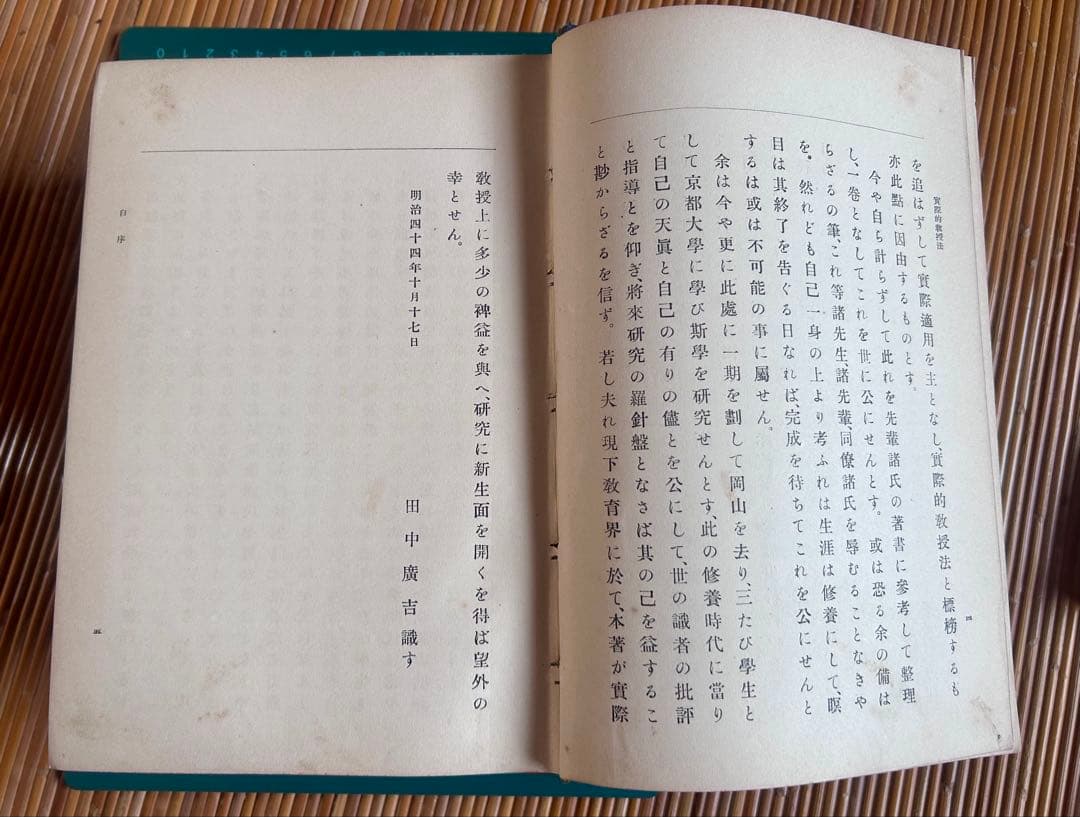 實際的教授法
を追はずして實際適用を主となし、實際的教授法と標榜するも
亦此點に因由するものとす。
今や自ら計らずして此れを先輩諸氏の著書に參考して整理
し、一卷となしてこれを世に公にせんとす。或は恐る余の備は
らざるの筆、これ等諸先生、諸先輩、同僚諸氏を辱むることなきや
を。然れども自己一身の上より考ふれは生涯は修養にして、瞑
目は其終了を告ぐる日なれば、完成を待ちてこれを公にせんと
するは或は不可能の事に屬せん。
余は今や更に此處に一期を劃して岡山を去り、三たび學生と
して京都大學に學び斯學を研究せんとす、此の修養時代に當り
て自己の天眞と自己の有りの儘とを公にして、世の識者の批評
と指導とを仰ぎ、將來研究の羅針盤となさば其の己を益するこ
と尠からざるを信ず。若し夫れ現下教育界に於て、本著が實際
四
教授上に多少の裨益を與へ、研究に新生面を開くを得ば望外の
幸とせん。
明治四十四年十月十七日
田中廣吉識す
自序
五
0 1 2 3 4 5 6 7 8 9 10 11 12 13